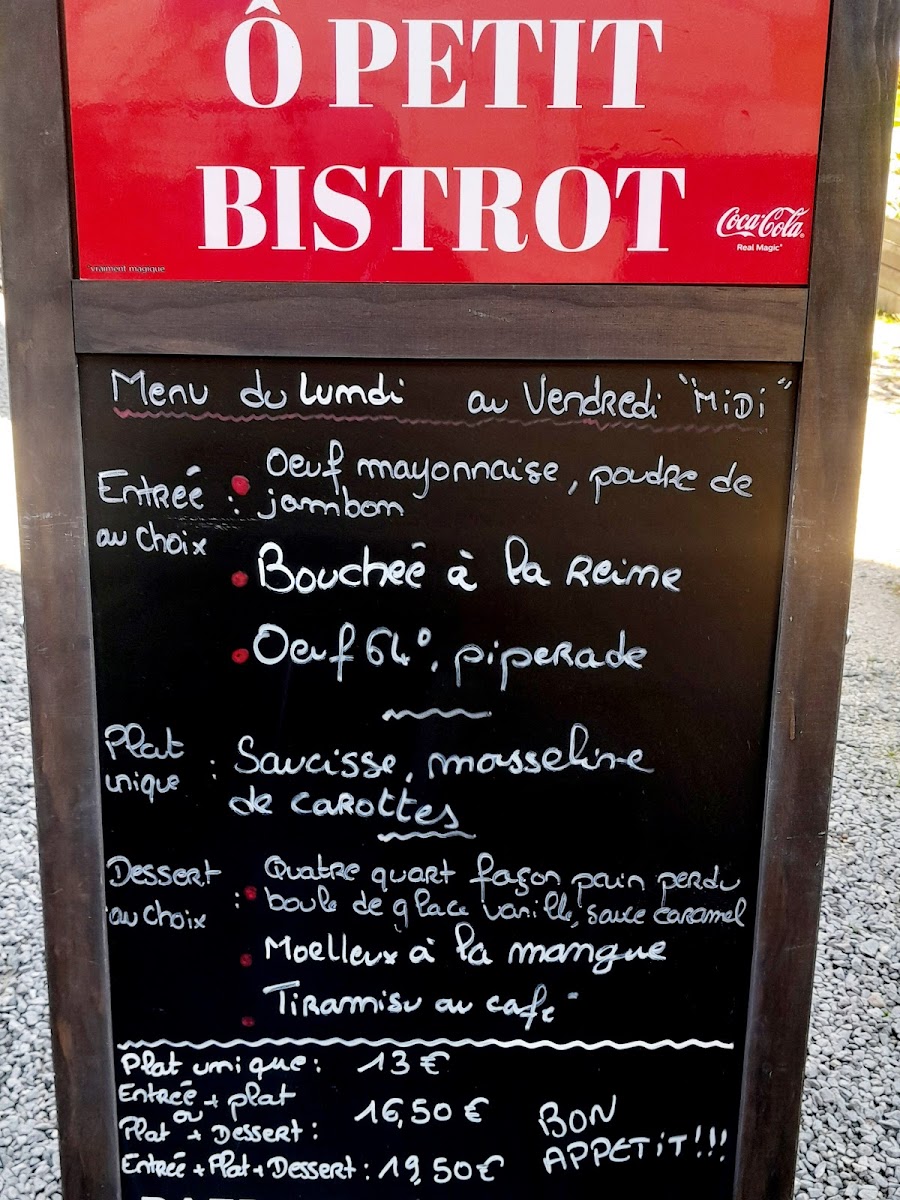 Ô PETIT
BISTROT
Coca-Cola
Real Magic
vraiment magique
Menu du lundi au Vendredi "MiDi"
Entrée au choix :
Oeuf mayonnaise, poudre de
jambon
Bouchée à la Reine
Oeuf 64°, piperade
Plat unique :
Saucisse, mousseline
de carottes
Dessert au choix :
Quatre quart façon pain perdu
boule de glace vanille, sauce caramel
Moelleux à la mangue
Tiramisu au café
Plat unique : 13 €
Entrée + plat
ou
Plat + Dessert : 16,50 €
Entrée + Plat + Dessert : 19,50 €
BON
APPETiT!!!